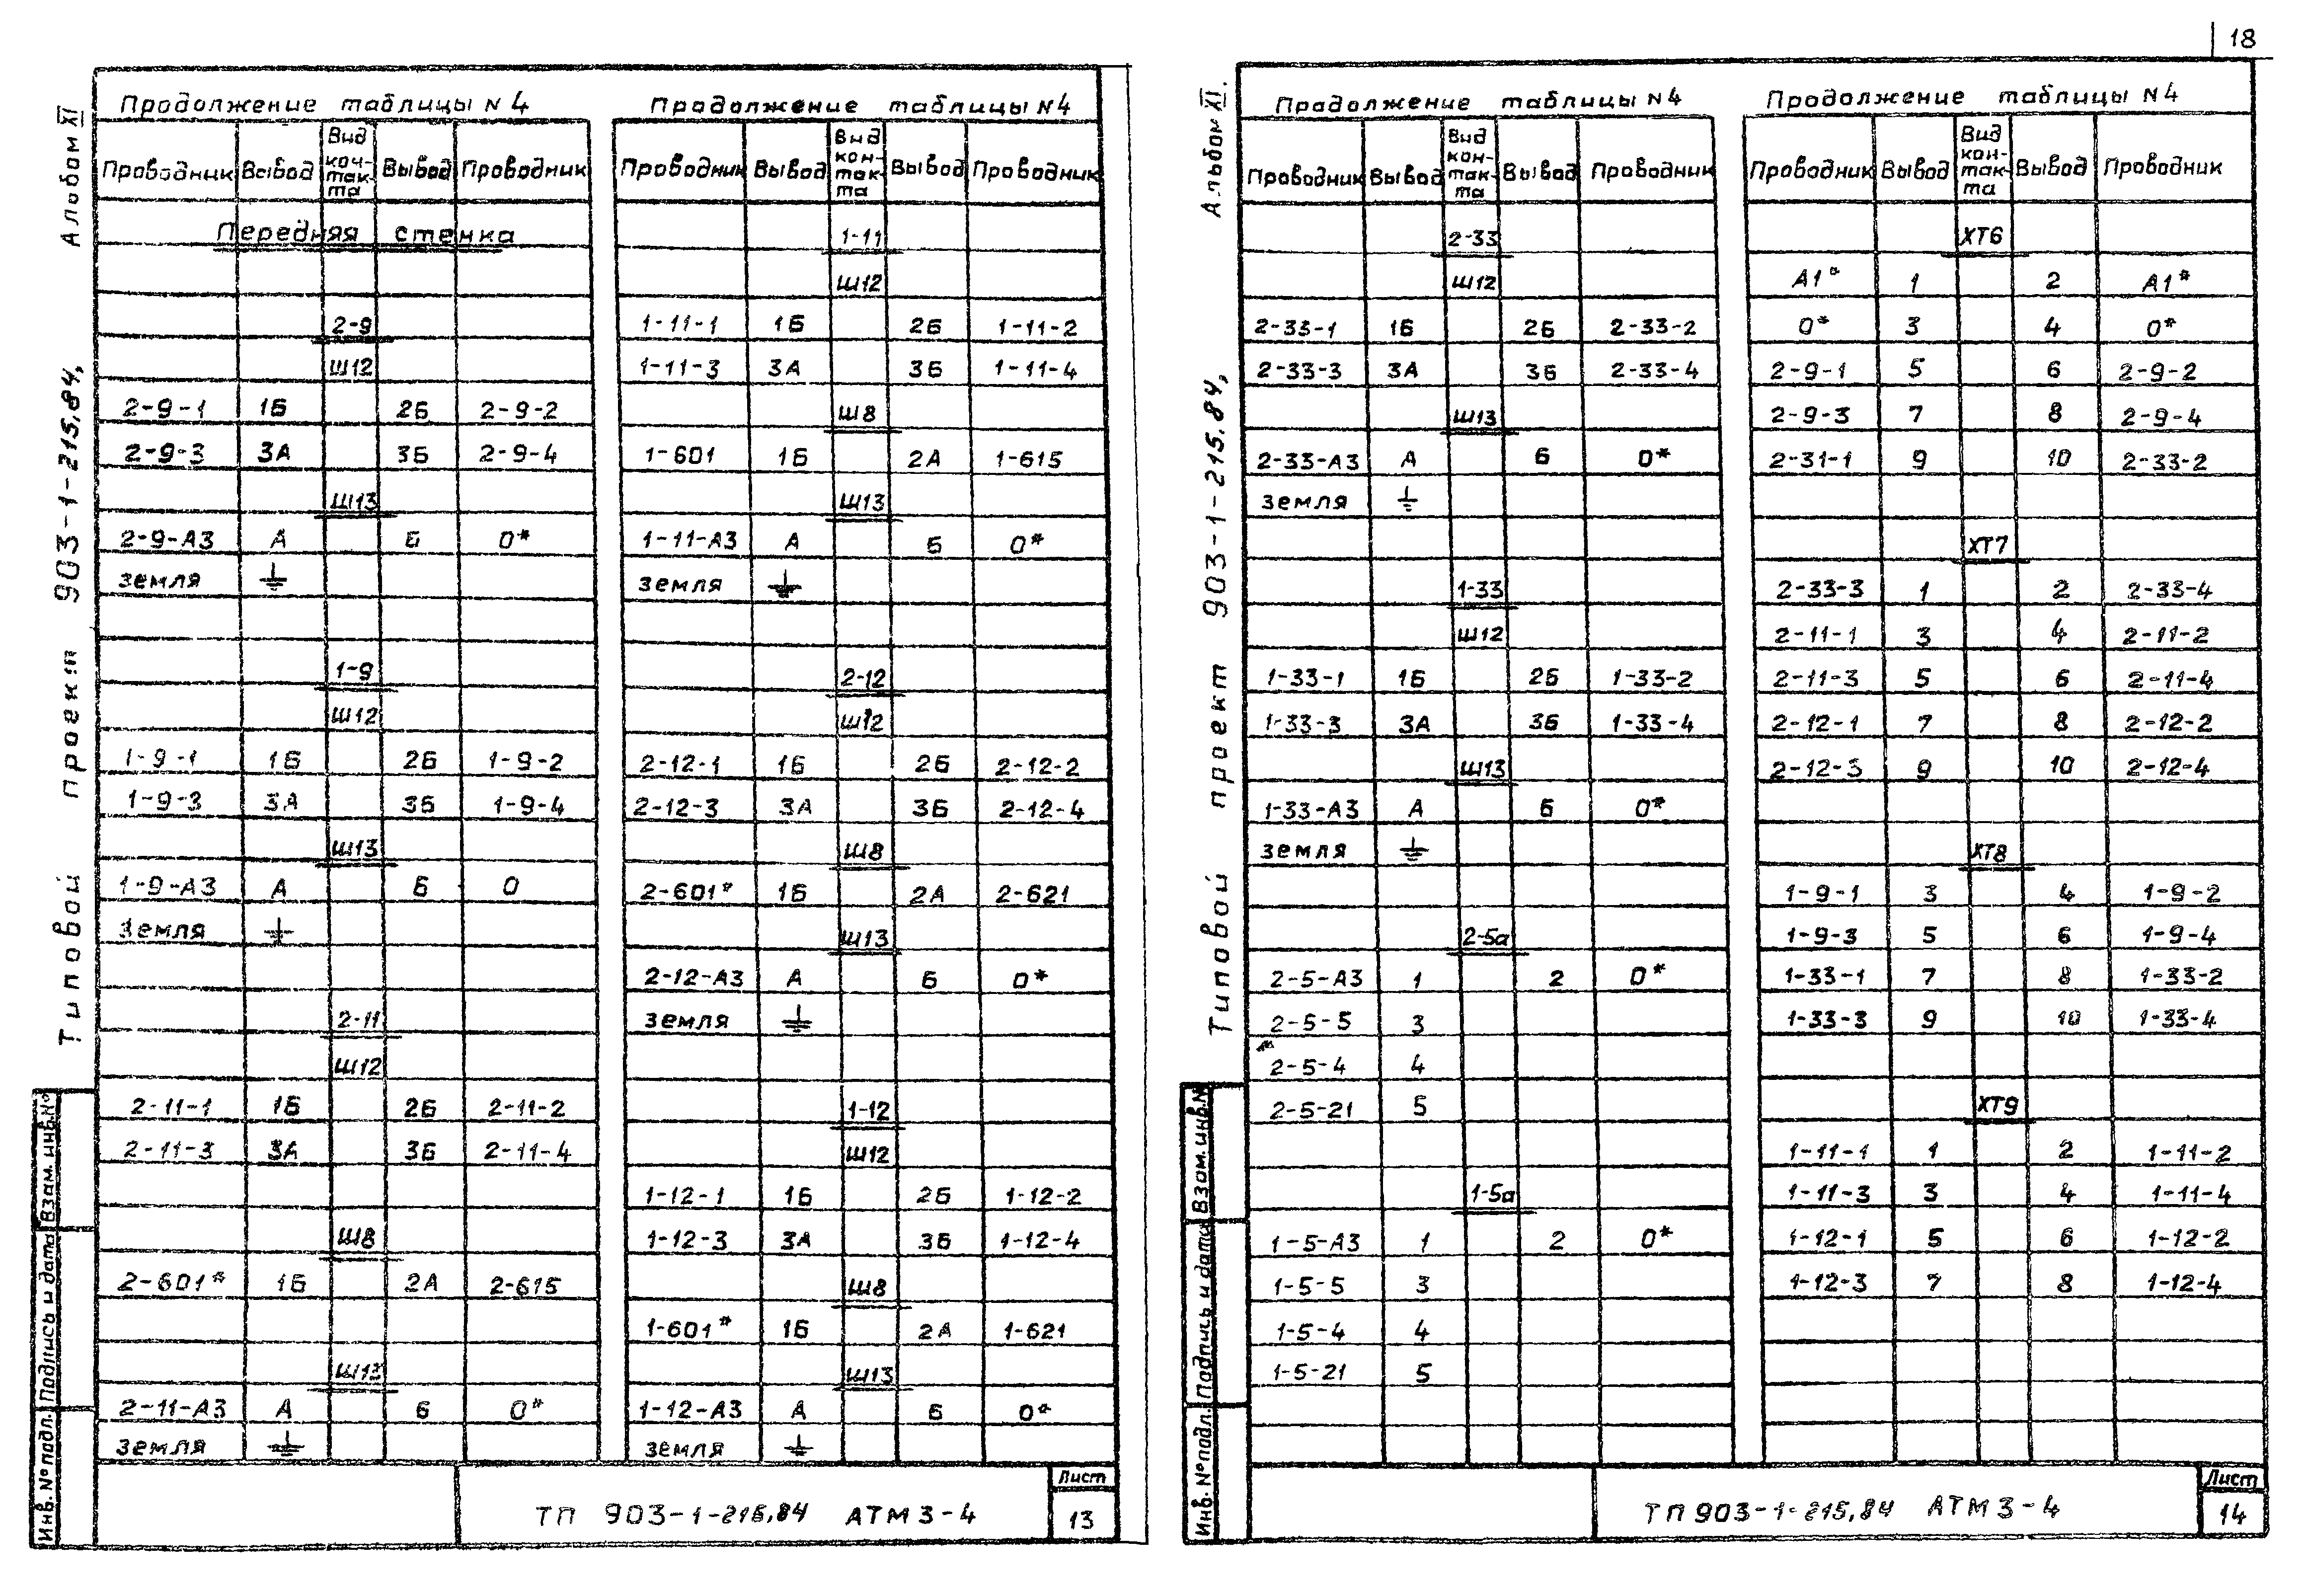 18
Альбом XI
Типовой проект 903-1-215.84,
Продолжение таблицы N 4
Проводник Вывод Вид кон-так-та Вывод Проводник
Передняя стенка
2-9
Ш12
2-9-1 1Б 2Б 2-9-2
2-9-3 3А 3Б 2-9-4
Ш13
2-9-А3 А Б 0*
земля ⏚
1-9
Ш12
1-9-1 1Б 2Б 1-9-2
1-9-3 3А 3Б 1-9-4
Ш13
1-9-А3 А Б 0
Земля ⏚
2-11
Ш12
2-11-1 1Б 2Б 2-11-2
2-11-3 3А 3Б 2-11-4
Ш8
2-601* 1Б 2А 2-615
Ш13
2-11-А3 А Б 0*
земля ⏚
Продолжение таблицы N 4
Проводник Вывод Вид кон-так-та Вывод Проводник
1-11
Ш12
1-11-1 1Б 2Б 1-11-2
1-11-3 3А 3Б 1-11-4
Ш8
1-601 1Б 2А 1-615
Ш13
1-11-А3 А Б 0*
земля ⏚
2-12
Ш12
2-12-1 1Б 2Б 2-12-2
2-12-3 3А 3Б 2-12-4
Ш8
2-601* 1Б 2А 2-621
Ш13
2-12-А3 А Б 0*
земля ⏚
1-12
Ш12
1-12-1 1Б 2Б 1-12-2
1-12-3 3А 3Б 1-12-4
Ш8
1-601* 1Б 2А 1-621
Ш13
1-12-А3 А Б 0*
земля ⏚
Инв. № подл. Подпись и дата Взам. инв. №
ТП 903-1-215.84 АТМ3-4
Лист
13
Альбом XI.
Типовой проект 903-1-215.84,
Продолжение таблицы N 4
Проводник Вывод Вид кон-так-та Вывод Проводник
2-33
Ш12
2-33-1 1Б 2Б 2-33-2
2-33-3 3А 3Б 2-33-4
Ш13
2-33-А3 А Б 0*
земля ⏚
1-33
Ш12
1-33-1 1Б 2Б 1-33-2
1-33-3 3А 3Б 1-33-4
Ш13
1-33-А3 А Б 0*
земля ⏚
2-5а
2-5-А3 1 2 0*
2-5-5 3
2-5-4 4
2-5-21 5
1-5а
1-5-А3 1 2 0*
1-5-5 3
1-5-4 4
1-5-21 5
Продолжение таблицы N 4
Проводник Вывод Вид кон-так-та Вывод Проводник
ХТ6
А1* 1 2 А1*
0* 3 4 0*
2-9-1 5 6 2-9-2
2-9-3 7 8 2-9-4
2-31-1 9 10 2-33-2
ХТ7
2-33-3 1 2 2-33-4
2-11-1 3 4 2-11-2
2-11-3 5 6 2-11-4
2-12-1 7 8 2-12-2
2-12-3 9 10 2-12-4
ХТ8
1-9-1 3 4 1-9-2
1-9-3 5 6 1-9-4
1-33-1 7 8 1-33-2
1-33-3 9 10 1-33-4
ХТ9
1-11-1 1 2 1-11-2
1-11-3 3 4 1-11-4
1-12-1 5 6 1-12-2
1-12-3 7 8 1-12-4
Инв. № подл. Подпись и дата Взам. инв. №
ТП 903-1-215.84 АТМ3-4
Лист
14